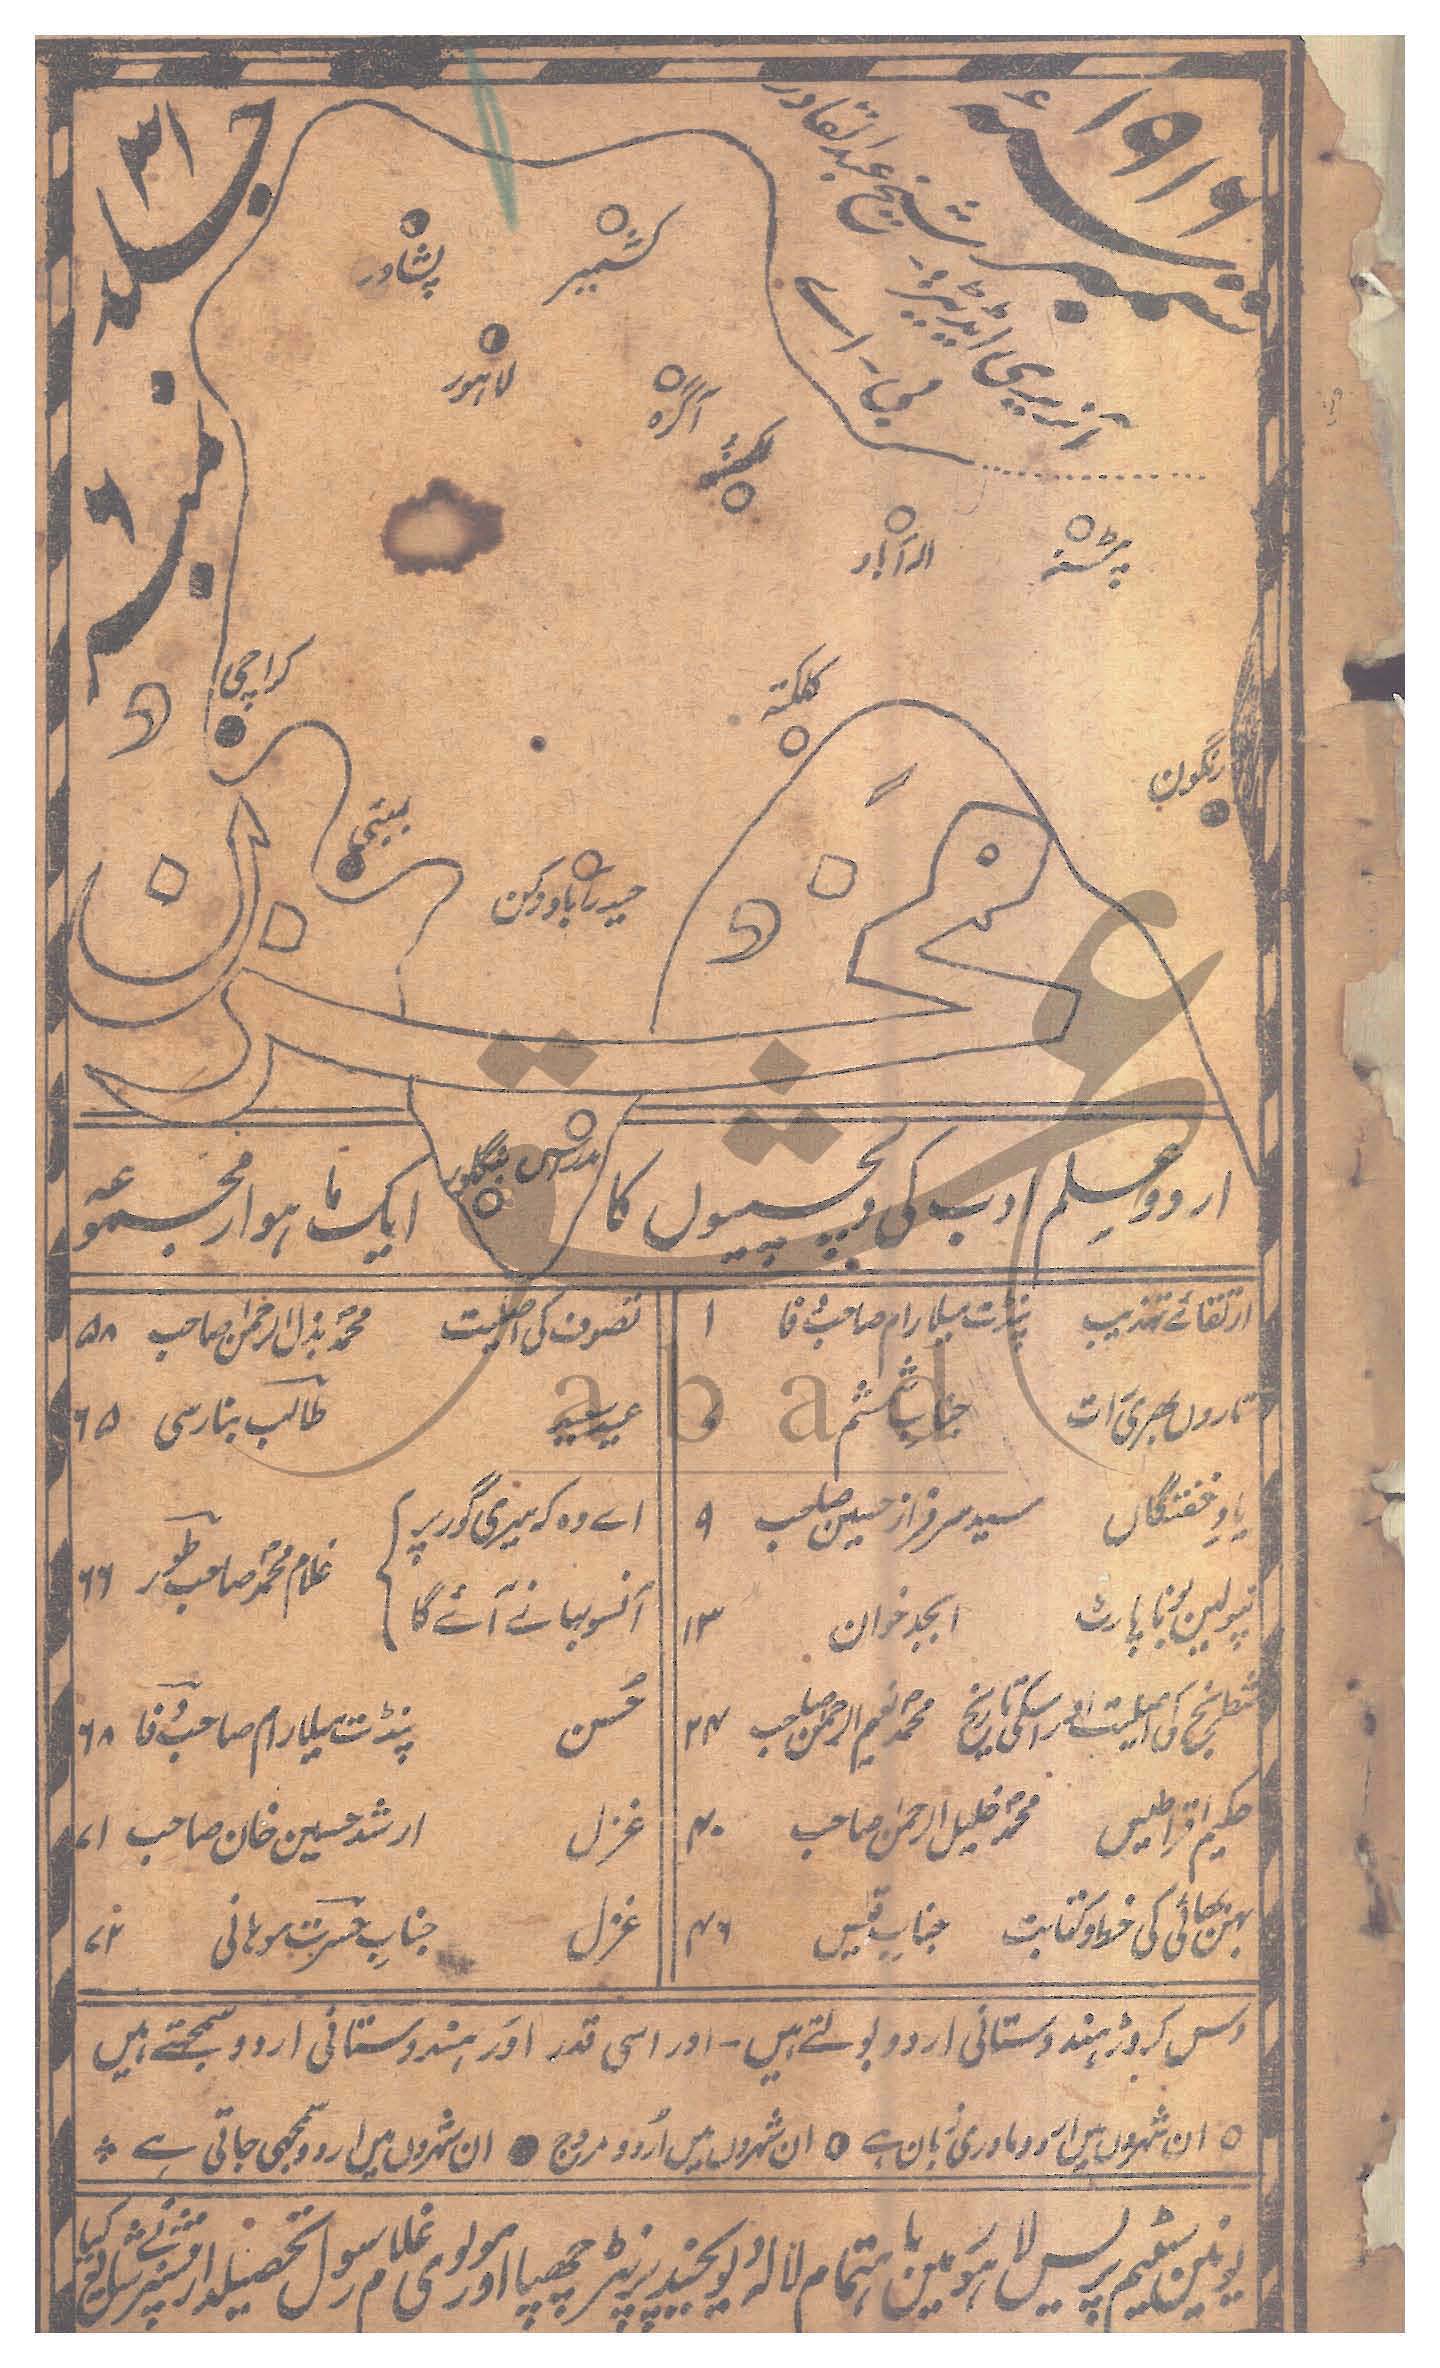 ستمبر سنہ ۱۹۱۶ء
جلد ۳۱
نمبر ۶
آنریری ایڈیٹر شیخ عبدالقادر
بی-اے
پشاور
کشمیر
لاہور
آگرہ
لکھنؤ
الہ آباد
پٹنہ
کراچی
کلکتہ
رنگون
بمبئی
حیدرآباد دکن
مخزن
مدراس
بنگلور
اردو علم ادب کی دلچسپیوں کا ایک ماہوار مجموعہ
ارتقائے تہذیب پنڈت میلا رام صاحب وفا ۱
تاروں بھری رات جناب
یادِ خفتگاں سید سرفراز حسین صاحب ۹
نپولین بونا پارٹ ابجد خوان ۱۳
شطرنج کی اصلیت اور اسکی تاریخ محمد نعیم الرحمٰن صاحب ۲۴
حکیم محمد خلیل الرحمٰن صاحب ۴۰
بہن بھائی کی خط و کتابت جناب قیس ۴۶
تصوف کی اصلیت محمد بذل الرحمٰن صاحب ۵۸
عید سعید طالب بنارسی ۶۵
اے وہ کہ میری گور پر
آنسو بہانے آئے گا
غلام محمد صاحب طور ۶۶
حُسن پنڈت میلا رام صاحب وفا ۶۸
غزل ارشد حسین خان صاحب ۷۱
غزل جناب حسرت موہانی ۷۲
دس کروڑ ہندوستانی اردو بولتے ہیں - اور اسی قدر اور ہندوستانی اردو سمجھتے ہیں
ان شہروں میں اردو مادری زبان ہے ان شہروں میں اُردو مروج ان شہروں میں اردو سمجھی جاتی ہے
یونین سٹیم پریس لاہور میں باہتمام لالہ پرنٹر چھپا اور مولوی غلام رسول تحصیلدار پنشنر نے شائع کیا
abad